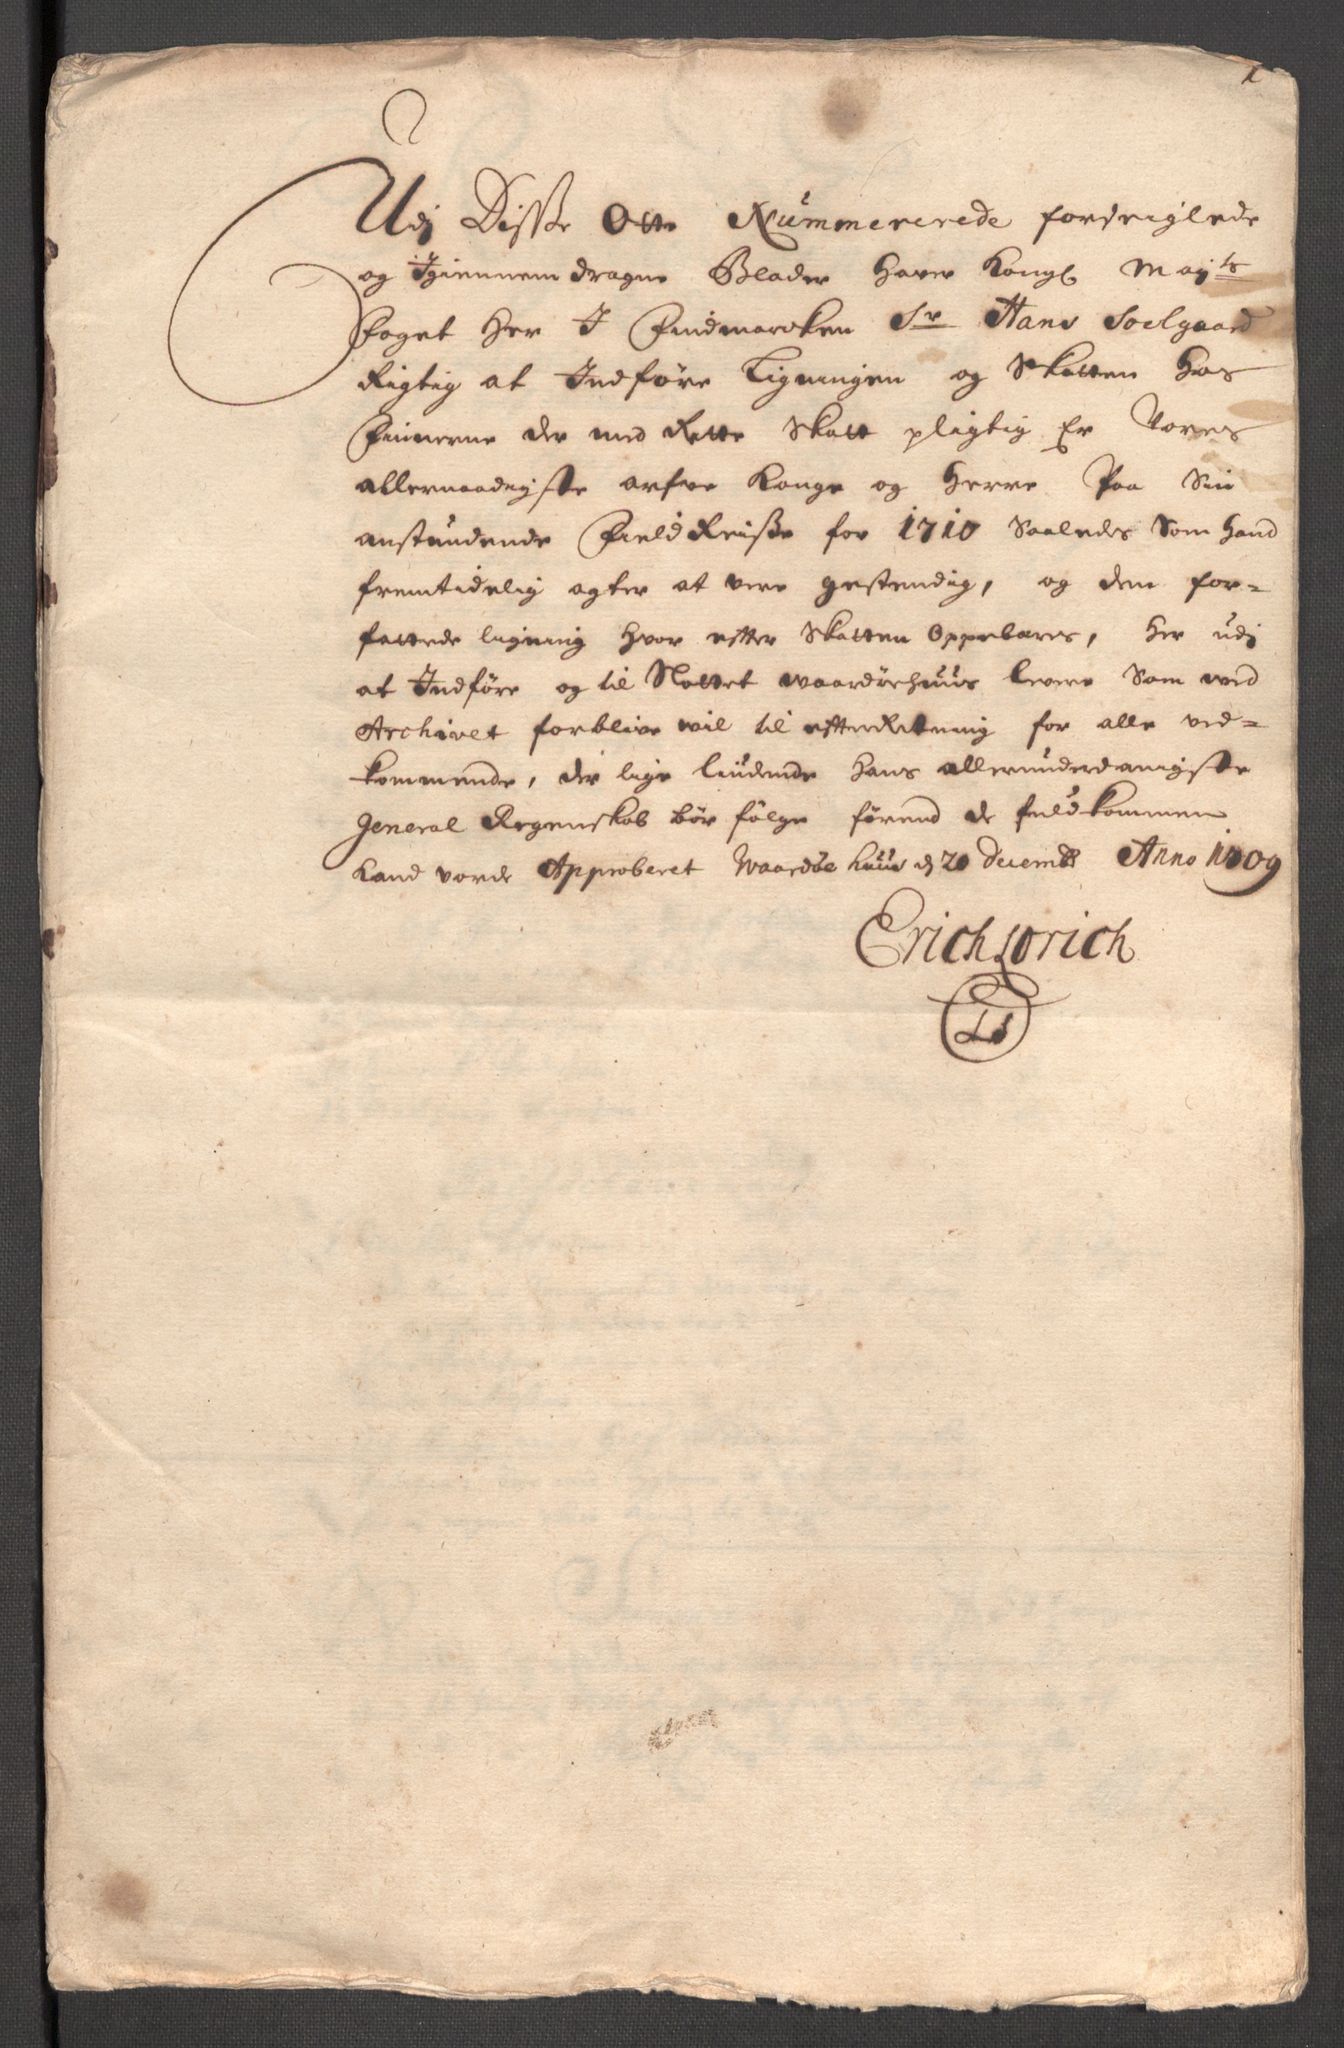 1
Udj Disse Otte Nummererede forseiglede
og Igiennemdragne Blader haver Kongl Mayts
Foget her I Findmarcken Sr Hans Soelgaard
Rigtig at Indføre Ligningen og Skatten hos
Finnerne der med Rette Skatt pligtig Er Vores
allernaadigste arfve Konge og Herre Paa Sin
anstundende Field Reisse for 1710 Saaledes Som hand
fremtidelig agter at vere gestendig, og den for=
fattede ligning hvor effter Skatten Oppebæres, her udj
at Indføre og til Slottet Waardøehuus levere Som wed
Archivet forblive wil til effterRetning for alle ved=
kommende, der lige liudende hans allerunderdanigste
General Regenskab bør følge førend de fuldkommen
Kand vorde Approberet Waardøehuus dj 20 Decembr Anno 1709
Erich Lorich
LS